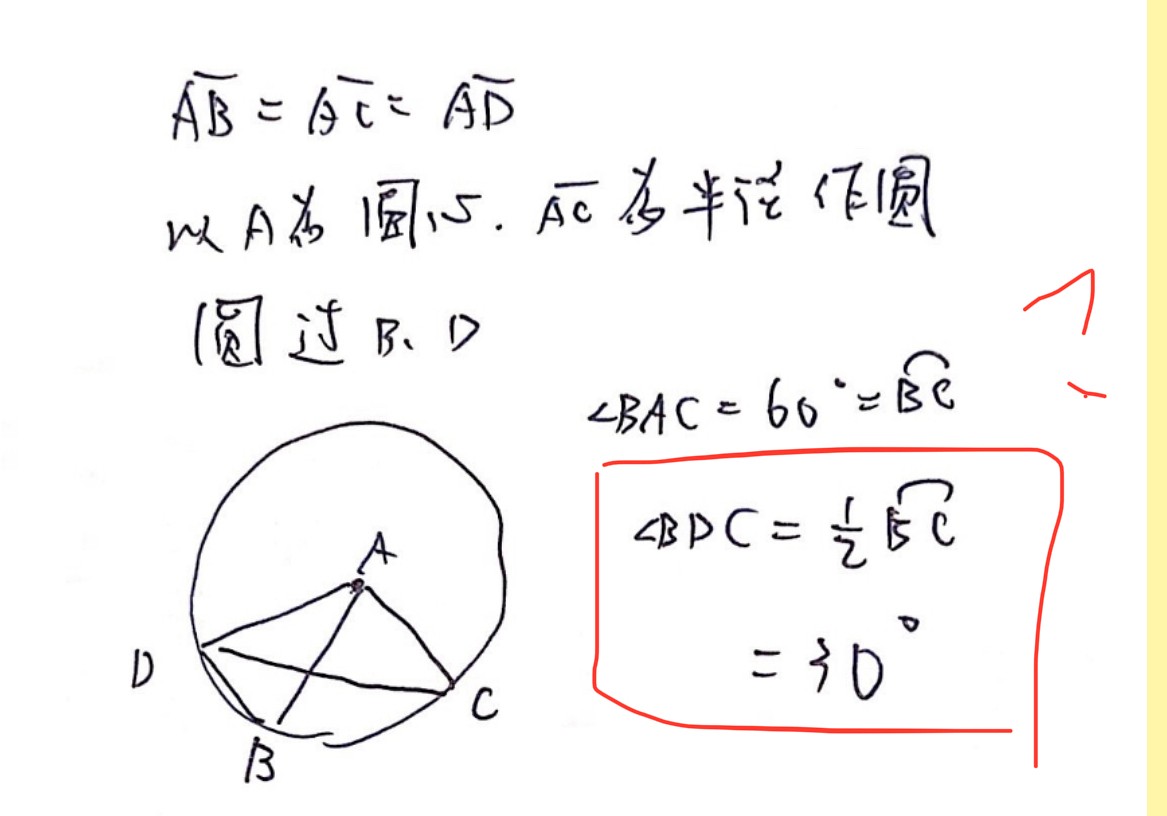 AB = AC = AD
以A为圆心. AC为半径作圆
圆过B、D
∠BAC = 60° = BC
∠BDC = ½ BC
= 30°
A
D
C
B